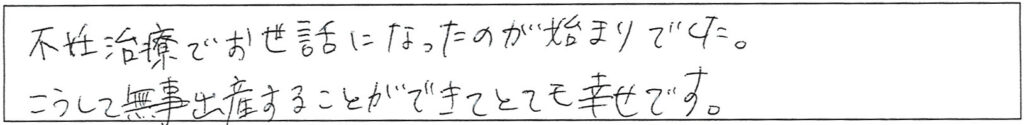 不妊治療でお世話になったのが始まりでした。
こうして無事出産することができてとても幸せです。